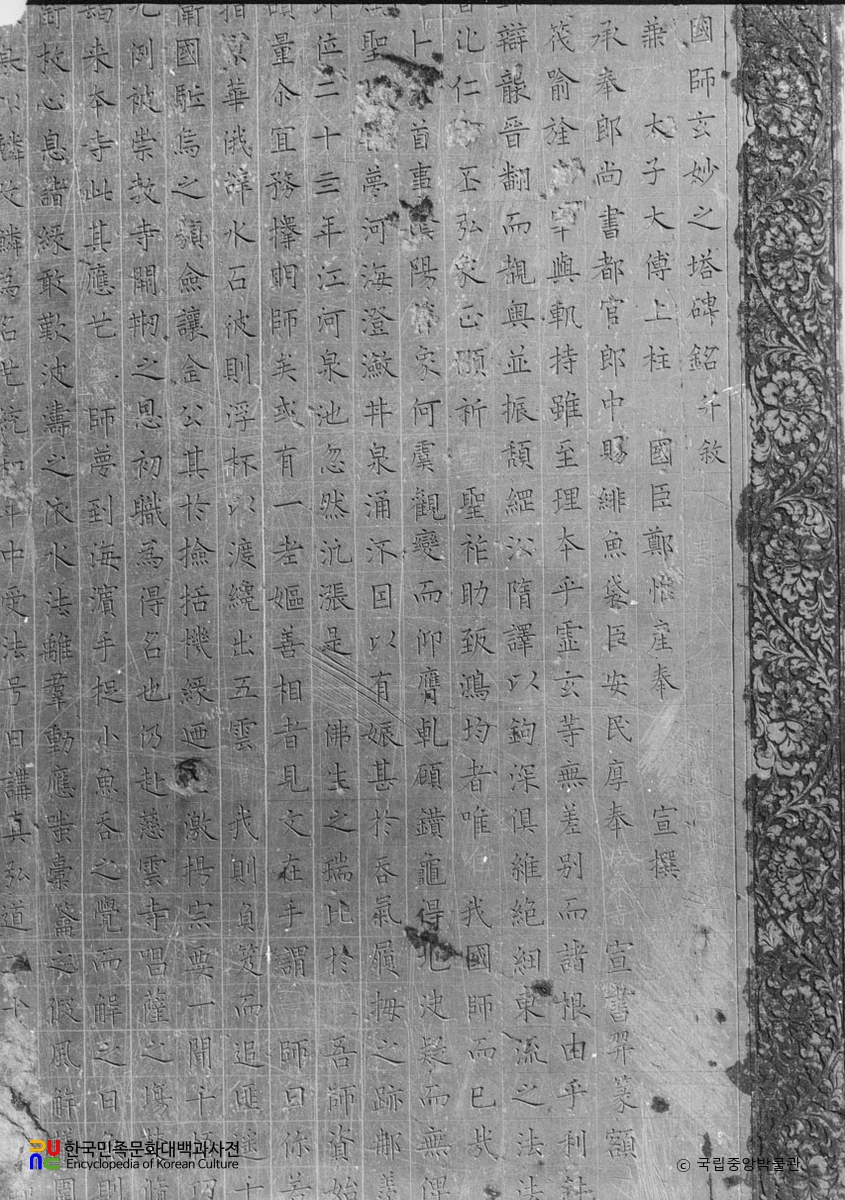 國師玄妙之塔碑銘 并敘
兼 太子大傅上柱 國臣鄭惟産奉 宣撰
承奉郎尚書都官郎中賜緋魚袋臣安民厚奉 宣書并篆額
筏喻詮 與軌持雖至理本乎靈玄等無差別而諸根由乎利
辯龍晉翻而覩奧並振頹綱㳂隋譯以鉤深俱維絕細東流之法
化仁 丕弘象正頤祈 聖祚助致鴻均者唯 我國師而已
卜 首事 陰陽 象何虞觀變而仰膺 碩鑽龜得兆決疑而無俾
聖 夢河海澄瀲井泉涌 因以有娠甚於吞氣履拇之跡
位二十三年江河泉池忽然沆漲是 佛生之瑞比於 吾師資始
量尒宜務擇明師矣或有一老嫗善相者見文在手謂 師曰你若
京華俄辭水石彼則浮杯以渡纔出五雲 我則負笈而追匪遙十
衛國 烏之 僉讓金公其於撿括機緣迺 激揚宗要一聞千
例被崇教寺開刱之恩初職為得名也仍赴慈雲寺唱薩之場
来本寺此其應也 師夢到海濱手捉小魚吞之覺而解之曰
故心息諸緣敢歎波濤之依水法離羣動應 橐籥之假風解
以鱗 鱗為名也統和年中受法号曰講真弘道 十
한국민족문화대백과사전
Encyclopedia of Korean Culture
© 국립중앙박물관